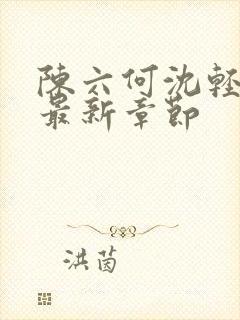 陳六何沈輕
最新章節
洪茵